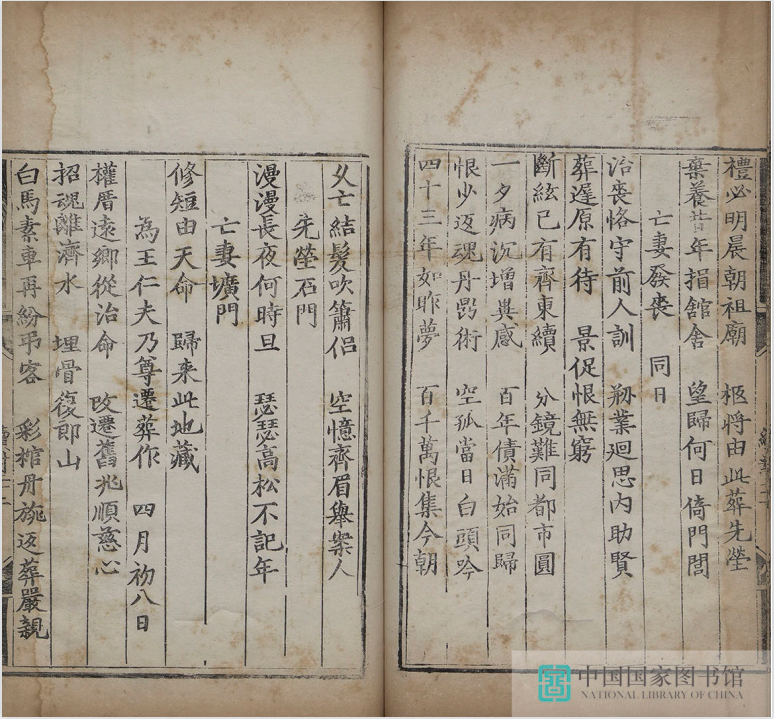 禮必明晨朝祖廟　柩將由此葬先塋
棄養昔年捐舘舍　望歸何日倚門閭
亡妻發喪　同日
治喪恪守前人訓　剏業廻思内助賢
葬遲原有待　景促恨無窮
斷絃已有齊東續　分鏡難同都市圓
一夕病沉增異感　百年債滿始同歸
恨少返魂丹竈術　空孤當日白頭吟
四十三年如昨夢　百千萬恨集今朝
乆亡結髮吹簫侣　空憶齊眉舉案人
先塋石門
漫漫長夜何時旦　瑟瑟高松不記年
亡妻壙門
修短由天命　歸来此地藏
為王仁夫乃尊遷葬作　四月初八日
權厝遠鄉從治命　改遷舊兆順慈心
招魂離濟水　埋骨復即山
白馬素車再紛弔客　彩棺丹旐返葬嚴親
中国国家图书馆
NATIONAL LIBRARY OF CHINA